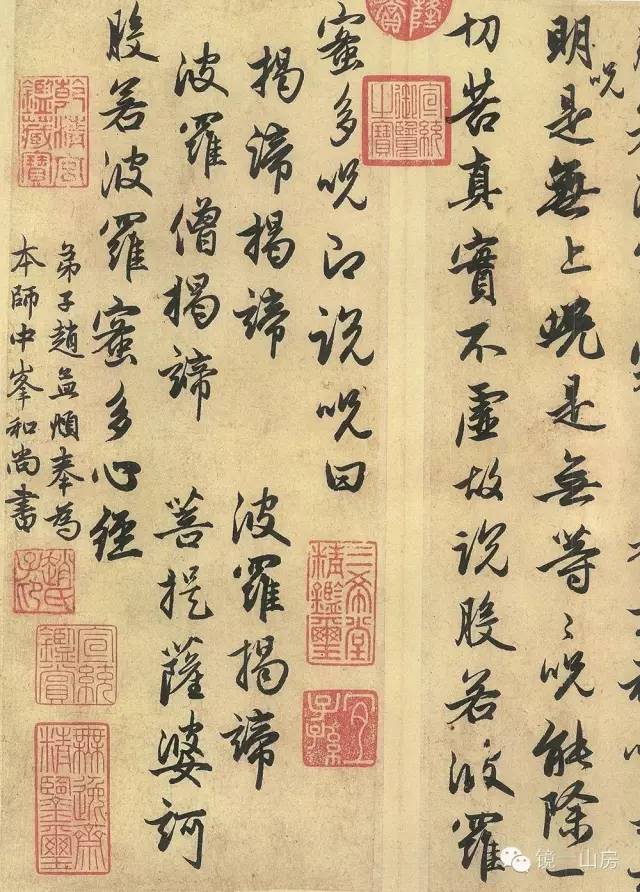 明呪是無上呪是無等〻呪能除一
切苦真實不虛故說般若波羅
蜜多呪即說呪曰
揭諦揭諦 波羅揭諦
波羅僧揭諦 菩提薩婆訶
般若波羅蜜多心經
弟子趙孟頫奉為
本師中峯和尚書
宣統御覽之寶
三希堂精鑑璽
宜子孫
乾清宮鑑藏寶
趙氏子昂
宣統鑑賞
無逸齋精鑒璽
镜一山房